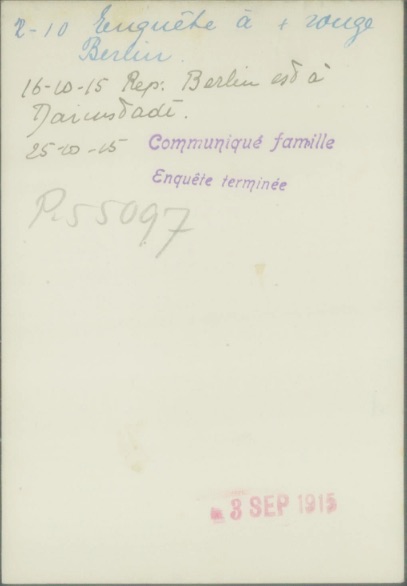 2-10 Enquête à + rouge
Berlin.
16-10-15 Rep. Berlin est à
Darmstadt.
25-10-15 Communiqué famille
Enquête terminée
P.55097
3 SEP 1915